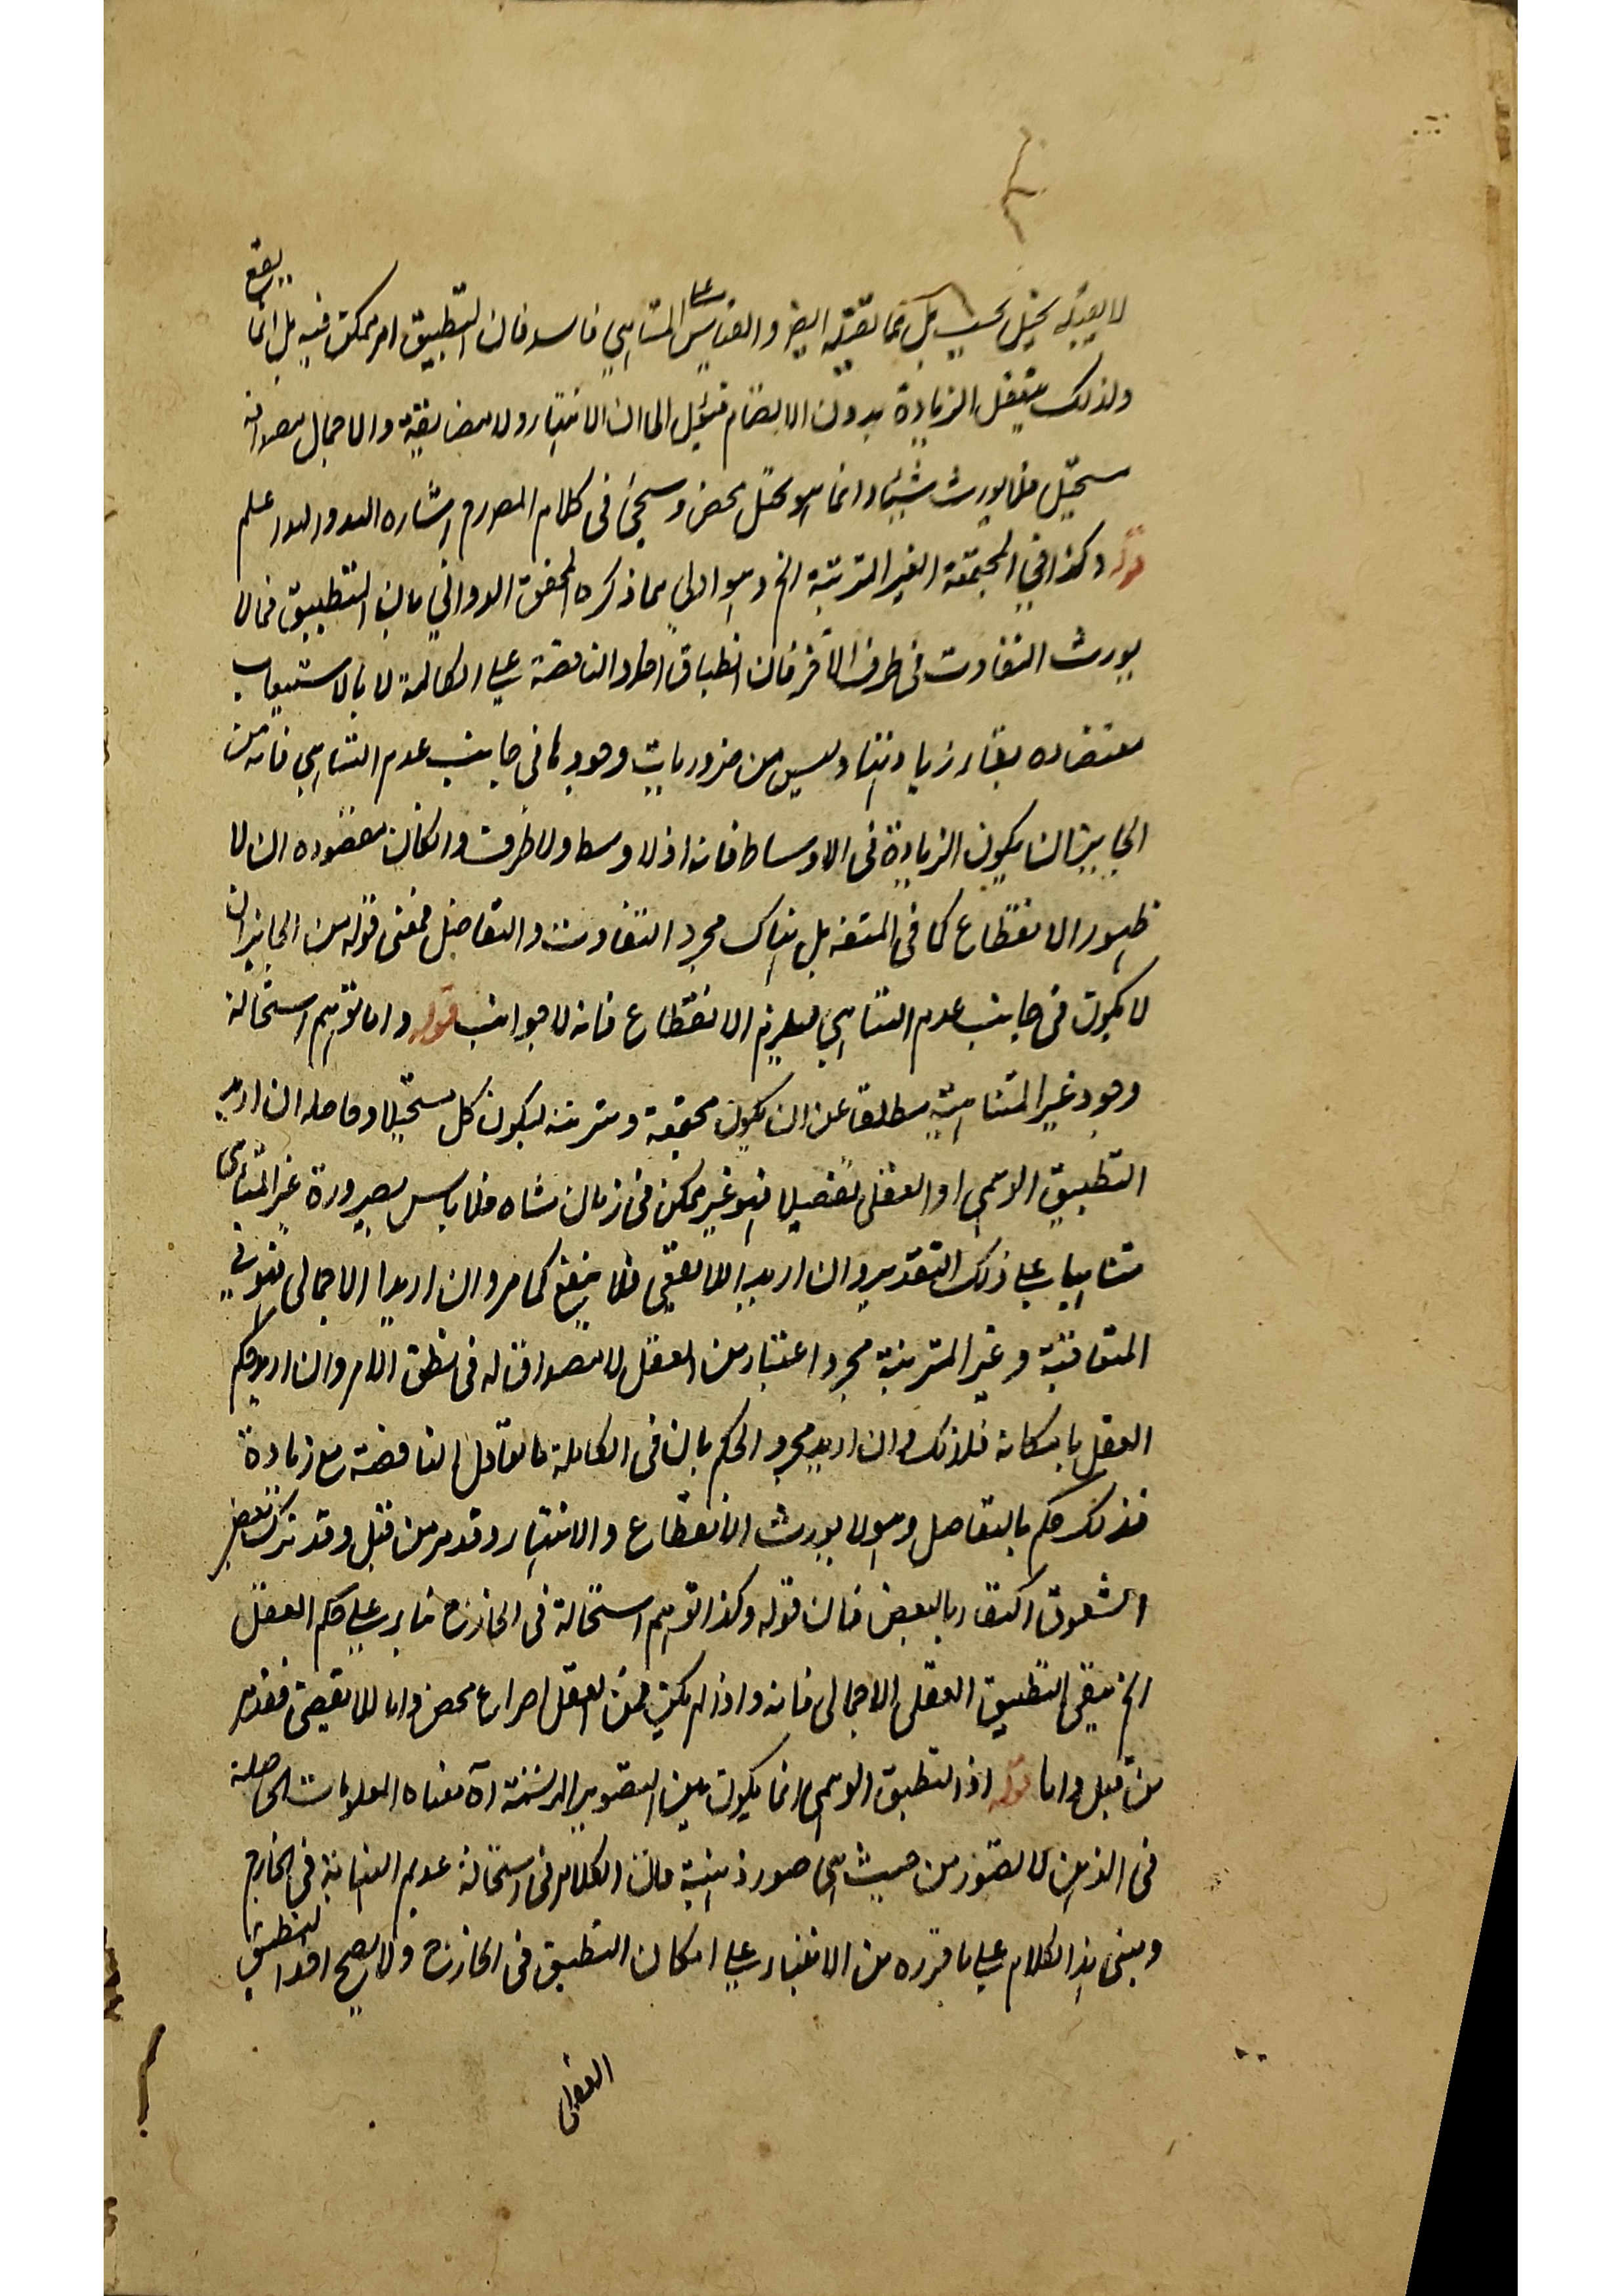 لا يفيده تخيل بحسب بل مما تقيده ايضا والقياس على المتناهي فاسد فان التطبيق امر ممكن فيه بل انما يقع
ولذلك يتعقل الزيادة بدون الانضمام الى ان الانتهاء ولا والاجمال
مستحيل فلا يورث شيئا وانما هو تخيل محض وسيجئ في كلام المص رح اشارة اليه والله اعلم
قوله وكذا في المجتمعة الغير المترتبة الخ وهو اولى مما ذكره المحقق الدواني بان التطبيق فيها لا
يورث التفاوت في طرف الاخر فان انطباق احاد الناقصة على الكاملة لا بالاستيعاب
بقاء زيادتها وليس من ضروريات وجودها في جانب عدم التناهي فانه من
الجايز ان يكون الزيادة في الاوساط فانه اذ لا وسط ولا طرف وانكان مقصوده ان لا
ظهور الانقطاع كما في المتسقة بل هناك مجرد التفاوت والتفاضل فمعنى قوله من الجايز ان
لا يكون في جانب عدم التناهي فيلزم الانقطاع فانه لا جوانب قوله واما توهم استحالة
وجود غير المتناهية مطلقا عن ان يكون مجتمعة ومترتبة ليكون كل مستحيلا وحاصله ان اريد
التطبيق الوهمي او العقلي تفصيلا فهو غير ممكن في زمان متناه فلا باس بصيرورة غير المتناهي
متناهيا على ذلك التقدير وان اريد اللايقفي فلا ينفع كما مر وان اريد الاجمالي فهو في
المتعاقبة وغير المترتبة مجرد اعتبار من العقل لا مصداق له في نفس الامر وان اريد حكم
العقل بامكانه فلذلك وان اريد مجرد الحكم بان في الكاملة ما يقابل الناقصة مع زيادة
فذلك حكم بالتفاضل وهو لا يورث الانقطاع والانتهاء وقد مر من قبل وقد ترك بعض
الشقوق اكتفاء بالبعض فان قوله وكذا توهم استحالة في الخارج بناء على حكم العقل
الخ ينفي التطبيق العقلي الاجمالي فانه واذ لم يكن فمن العقل اختراع محض واما اللايقفي فقد مر
من قبل واما قوله اذ التطبيق الوهمي انما يكون بين الصور المرتسمة اه معناه المعلومات الحاصلة
في الذهن لا الصور من حيث هي صور ذهنية فان الكلام في استحالة عدم النهاية في الخارج
ومبنى هذا الكلام على ما قرره من الابتناء على امكان التطبيق في الخارج ولا يصح اخذ التطبيق
العقلي